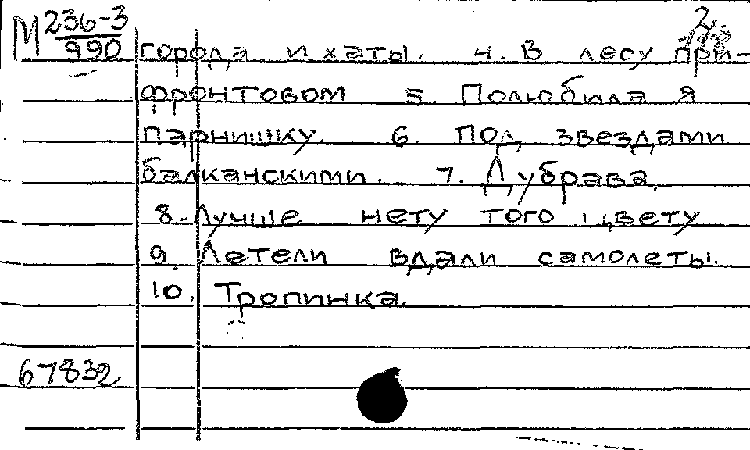 М 236-3
990
2
города и хаты. 4. В лесу при-
фронтовом 5. Полюбила я
парнишку. 6. Под звездами
балканскими. 7. Дубрава.
8. Лучше нету того цвету
9. Летели вдали самолеты.
10. Тропинка.
67832